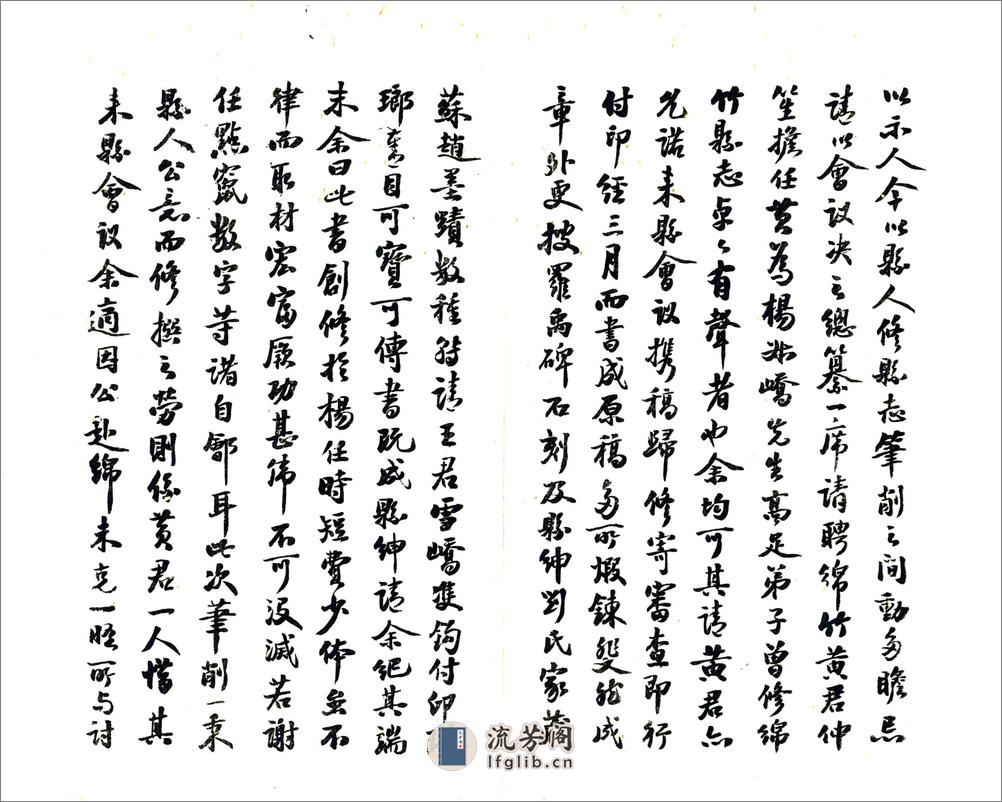 以示人今以縣人修縣志筆削之間動多瞻忌
請以會议决之總纂一席請聘綿竹黄君仲
笙擔任黄為楊叔嶠先生高足弟子曾修綿
竹縣志卓卓有聲者也余均可其請黄君亦
允諾来縣會议携稿歸修寄審查即行
付印經三月而書成原稿多所煅鍊斐然成
章外更搜羅禹碑石刻及縣紳劉氏家藏
蘇趙墨蹟数種特請王君雪嶠隻鈎付印
瑯 目可寶可傳書既成縣紳請余紀其端
末余曰此書創修於楊任時短費少体並不
律而取材宏富厥功甚偉不可没滅若謝
任點竄数字等諸自鄶耳此次筆削一秉
縣人公意而修撰之勞則係黄君一人惜其
来縣會议余適因公赴綿未克一晤所与討
流芳閣
lfglib.cn